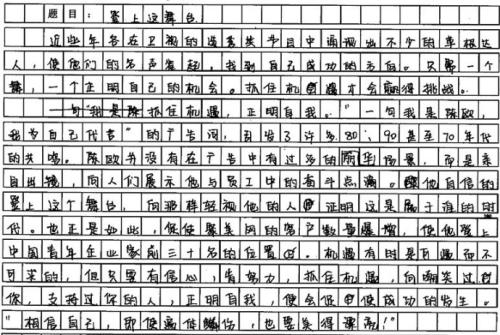 题目：登上这舞台
近些年各在卫视的选秀类节目中涌现出不少的草根达
人，使他们的名声大起，找到自己成功的方向。只要一个
舞，一个正明自己的机会。抓住机遇才会赢得挑战。
一句"我是陈欧，
我为自己代言"的广告词，引发了许多80、90甚至70年代
的共鸣。陈欧并没有在广告中有过多的丽华场景，而是亲
自出镜，向人们展示他与员工中的奋斗点滴。他自信的
登上这个舞台，向那样轻视他的人证明这是属于谁的时
代。也正是如此，促使聚美网的客户数量爆增，使他登上
中国青年企业家前三十名的位置。机遇有的是可遇而不
可求的，但只要有信心，肯努力，抓住机遇，向嘲笑过
你，支持过你的人，正明自我，便会促使成功的发生。
"相信自己，即使遍体鳞伤，也要笑得漂亮！"